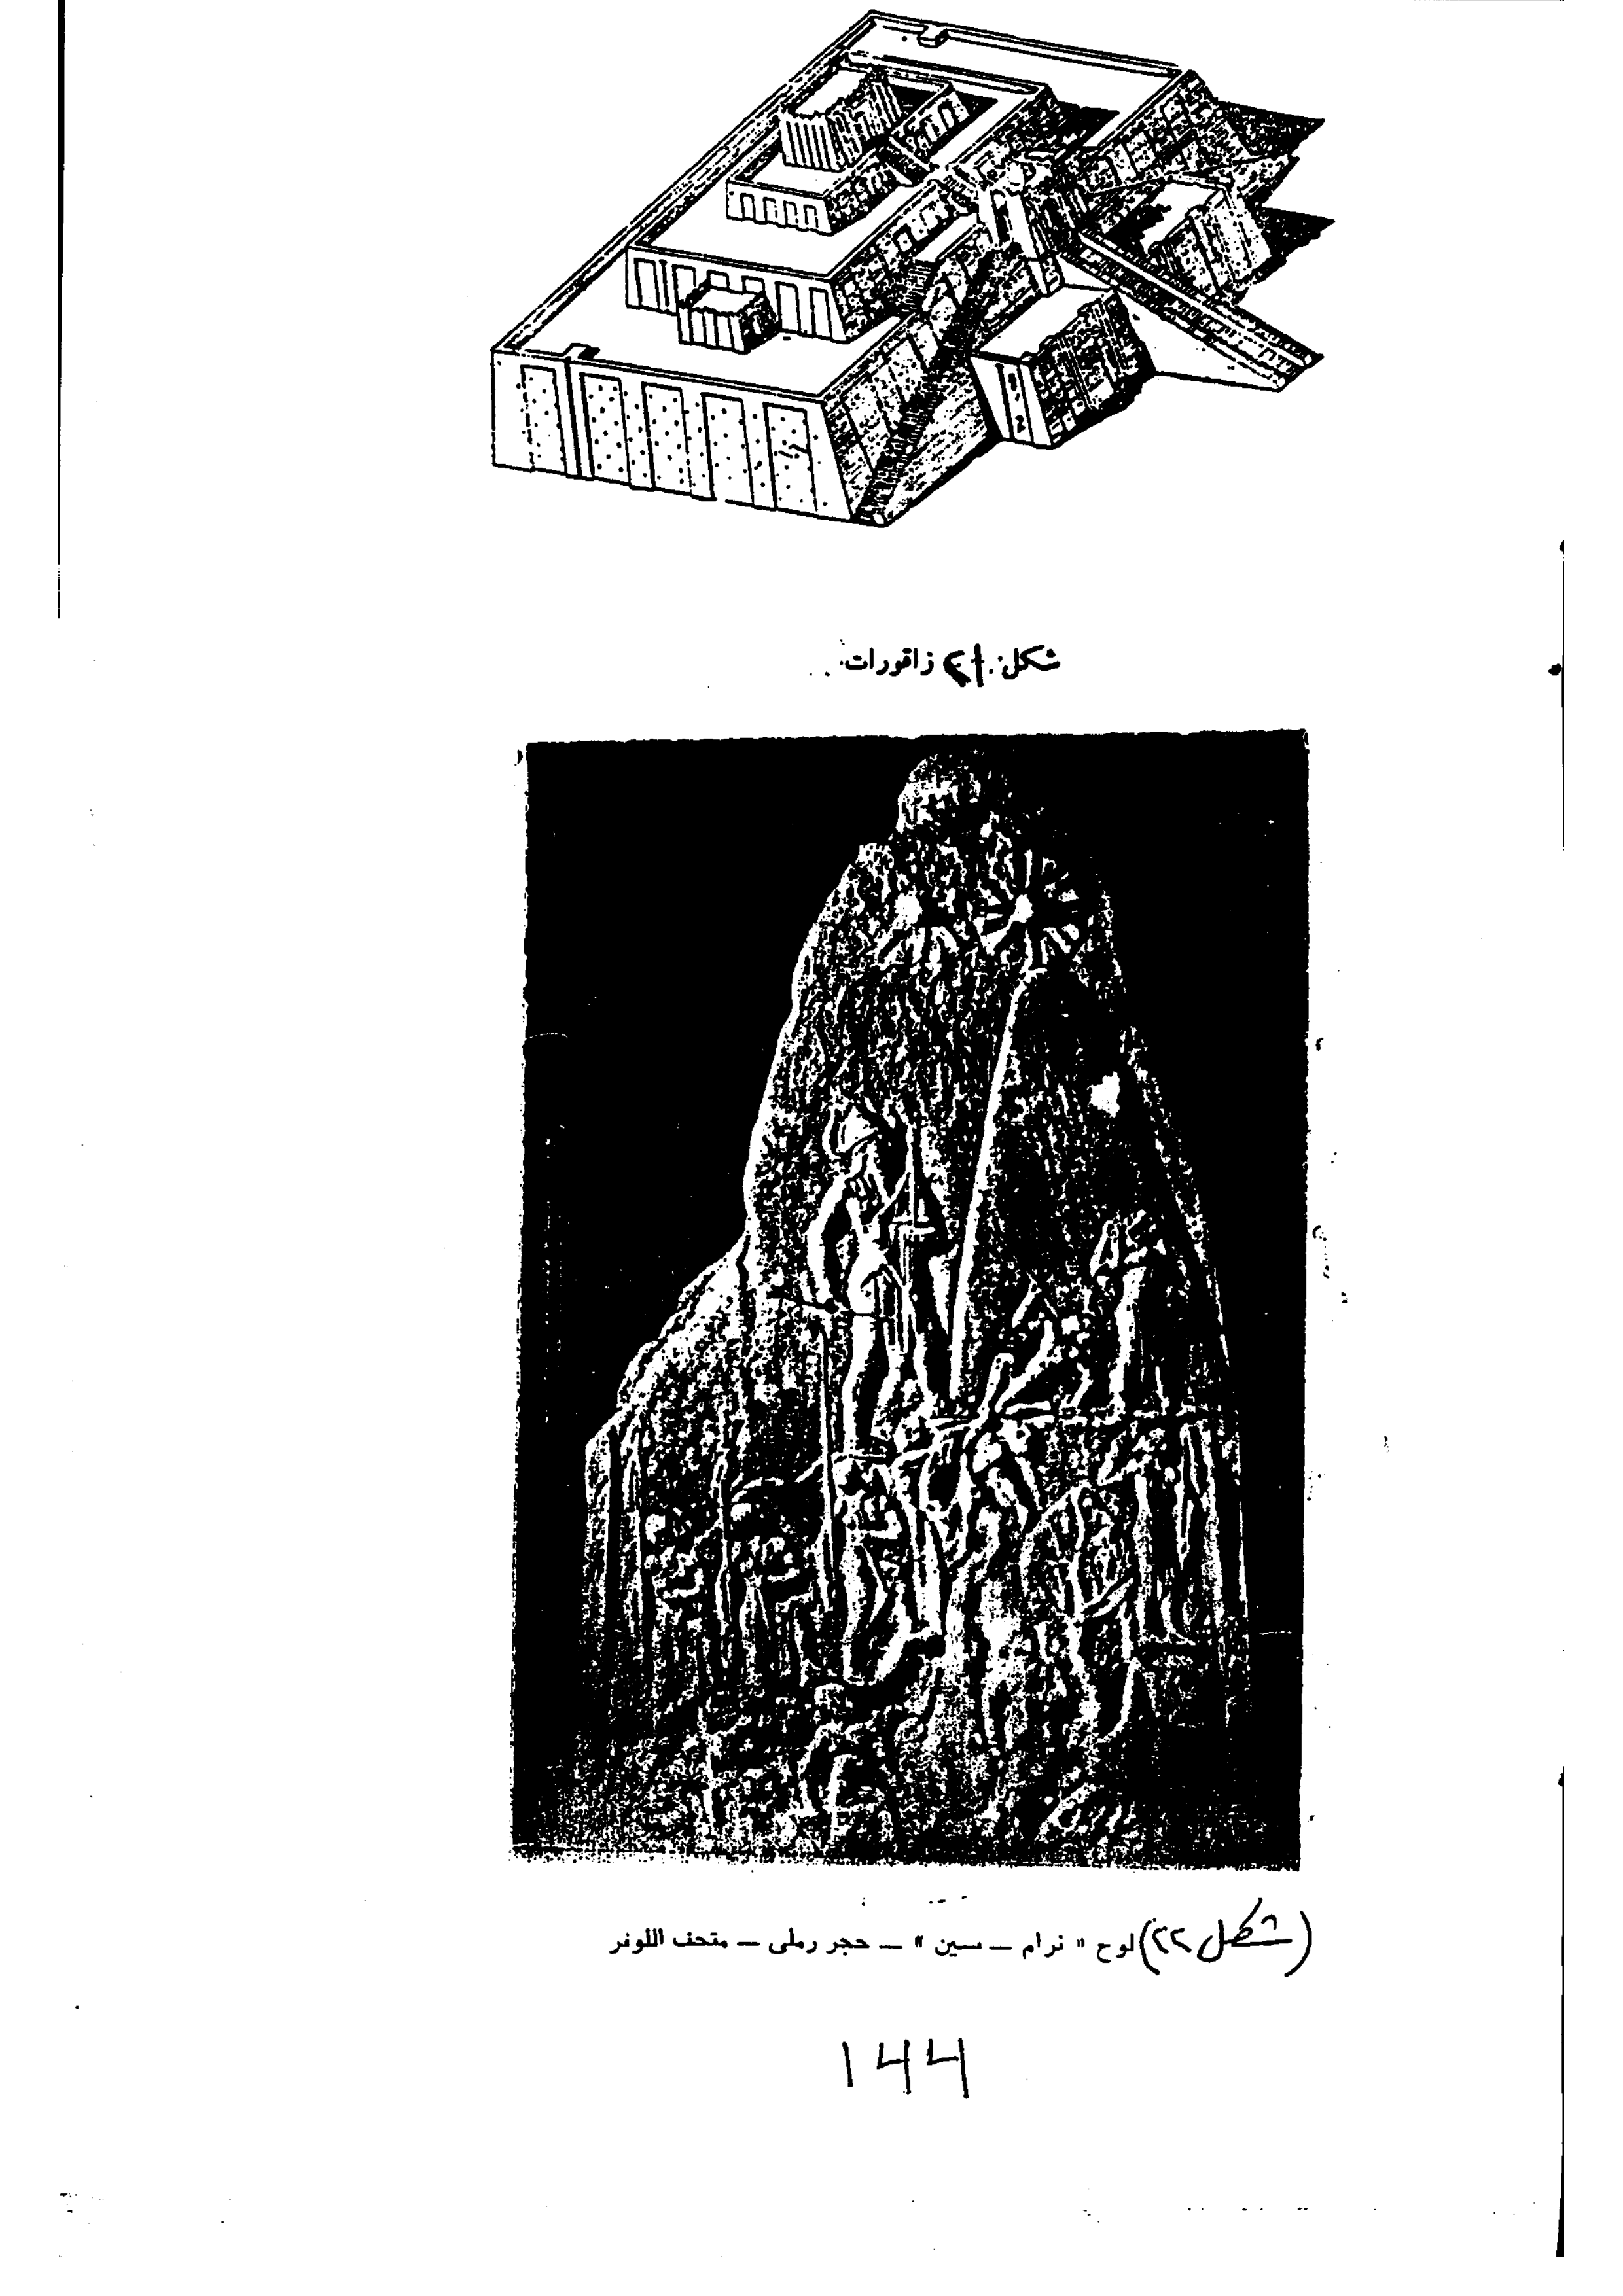 شكل : ٢١ زاقورات
(شكل ٢٢) لوح « نرام – سين » – حجر رملى – متحف اللوفر
١٤٤